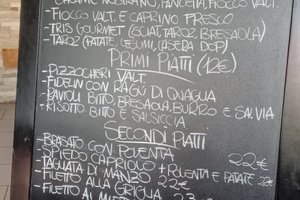 NOSTRANO, PANCETTA, FIOCCO VALT.
- FIOCCO VALT. E CAPRINO FRESCO
- TRIS GOURMET (SCIAT, TAROZ, BRESAOLA)
- TAROZ (PATATE, LEGUMI, CASERA DOP)
PRIMI PIATTI (12€)
- PIZZOCHERI VALT.
- FIDELIN CON RAGÚ DI QUAGLIA
- RAVIOLI BITTO, BRESAOLA, BURRO E SALVIA
- RISOTTO BITTO E SALSICCIA
SECONDI PIATTI
- BRASATO CON POLENTA
- SPIEDO CAPRIOLO + POLENTA E PATATE 22€
- TAGLIATA DI MANZO 22€
- FILETTO ALLA GRIGLIA
- FILETTO AL